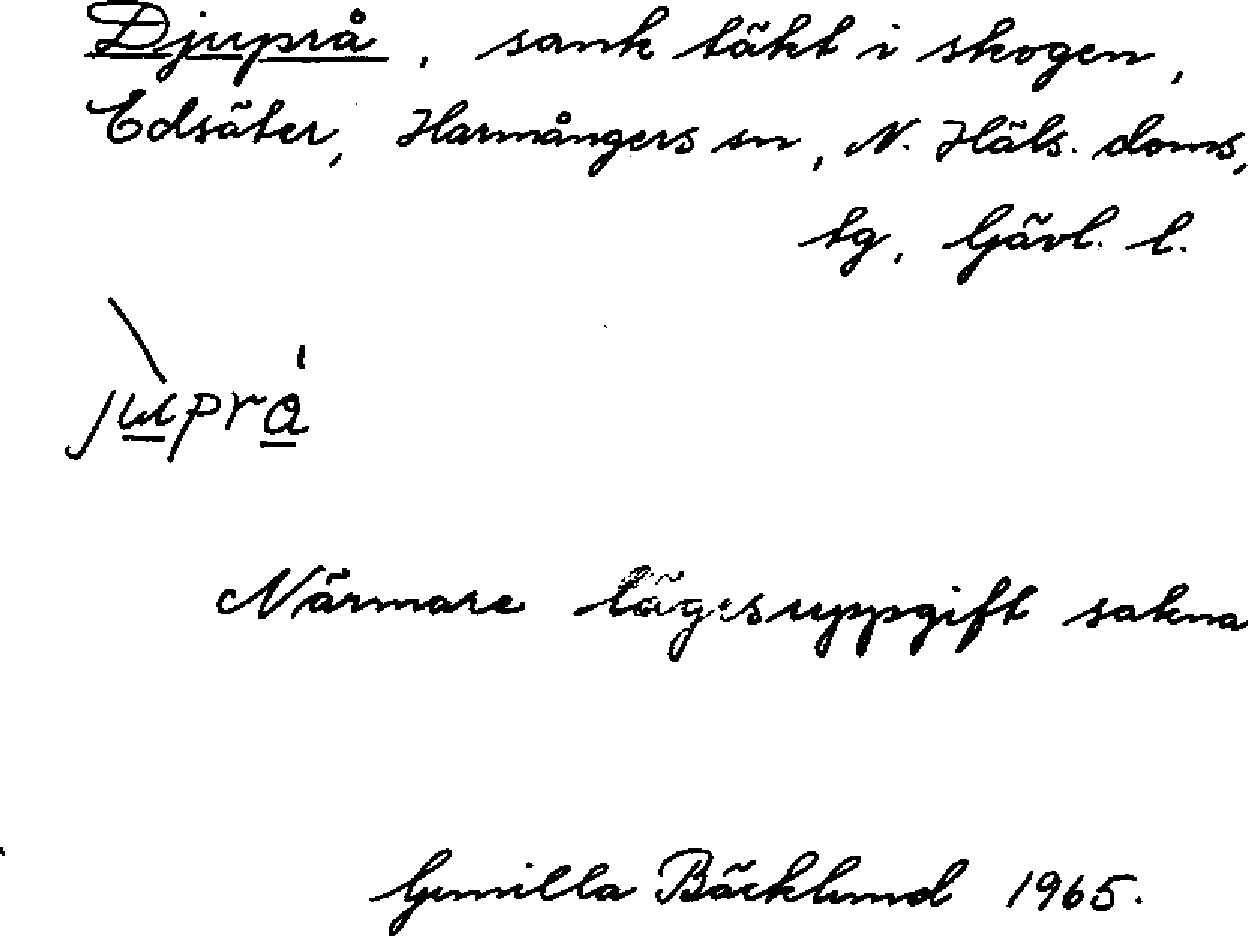 Djuprå, sank täkt i skogen,
Edsäter, Harmångers sn, N. Häls. doms,
tg, Gävl. l.
jùprá
Närmare lägesuppgift sakna
Gunilla Bäcklund 1965.